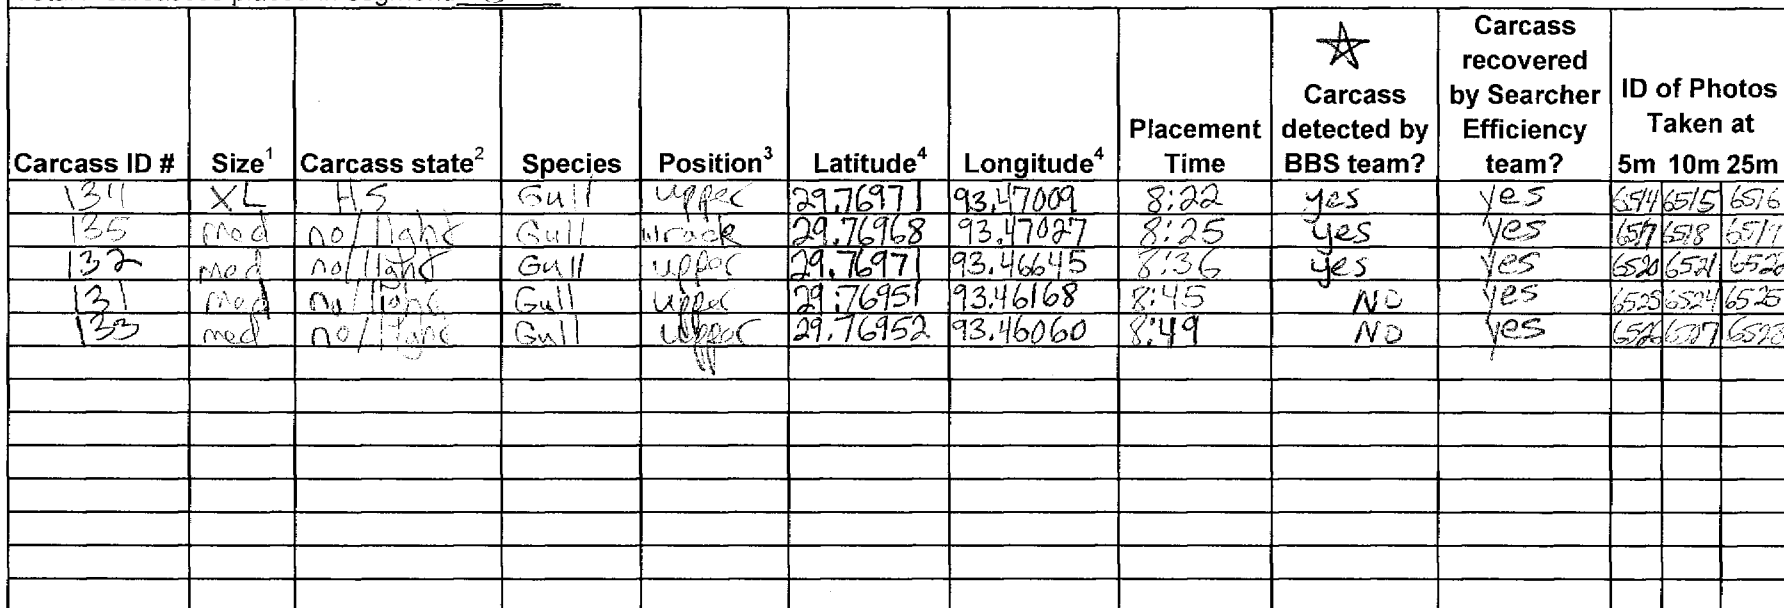 Carcass ID # Size1 Carcass state2 Species Position3 Latitude4 Longitude4 Placement Time Carcass detected by BBS team? Carcass recovered by Searcher Efficiency team? ID of Photos Taken at 5m 10m 25m
134 XL HS Gull upper 29.76971 93.47009 8:22 yes yes 6515 6516
135 med no/light Gull wrack 29.76968 93.47027 8:25 yes yes 6517 6518 6519
132 med no/light Gull upper 29.76971 93.46645 8:36 yes yes 6520 6521
131 med no/light Gull upper 29.76951 93.46168 8:45 NO yes 6524 6525
133 med no/light Gull upper 29.76952 93.46060 8:49 NO yes 6526 6527 6528